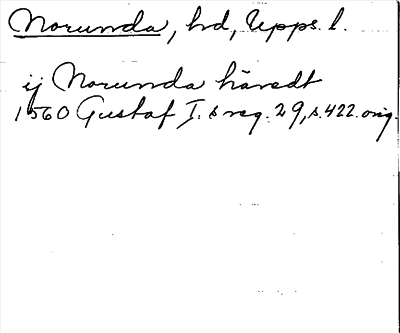 Norunda, hd, Upps. l.
ij Norunda häredt
1560 Gustaf I. s reg. 29, s. 422. orig.